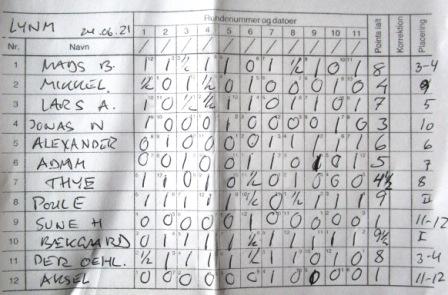 LYNM 24.06.21 Rundenummer og datoer Points ialt Korrektion Placering
Nr. Navn 1 2 3 4 5 6 7 8 9 10 11
1 MADS B. 1 1 ½ 1 1 0 1 ½ 1 0 1 8 3-4
2 MIKKEL ½ 0 1 ½ 0 1 0 0 0 1 0 4 9
3 LARS A. 1 0 ½ ½ 1 0 1 1 0 1 1 7 5
4 JONAS N 1 0 0 0 1 0 0 0 0 1 0 3 10
5 ALEXANDER 0 1 0 0 0 0 1 1 1 1 1 6 6
6 ADAM 0 0 1 0 0 1 1 0 1 0 1 5 7
7 THYE 1 1 0 1 0 ½ 0 1 0 0 0 4½ 8
8 POUL E 1 1 1 1 1 ½ 0 ½ 1 1 1 9 II
9 SUNE H 0 0 0 0 0 1 0 0 0 0 0 1 11-12
10 BEKGAARD 0 1 1 1 1 ½ 1 1 1 1 1 9½ I
11 DER OEHL. ½ 1 1 1 1 ½ 1 1 0 1 0 8 3-4
12 AKSEL 0 0 0 0 0 0 1 0 0 0 0 1 11-12